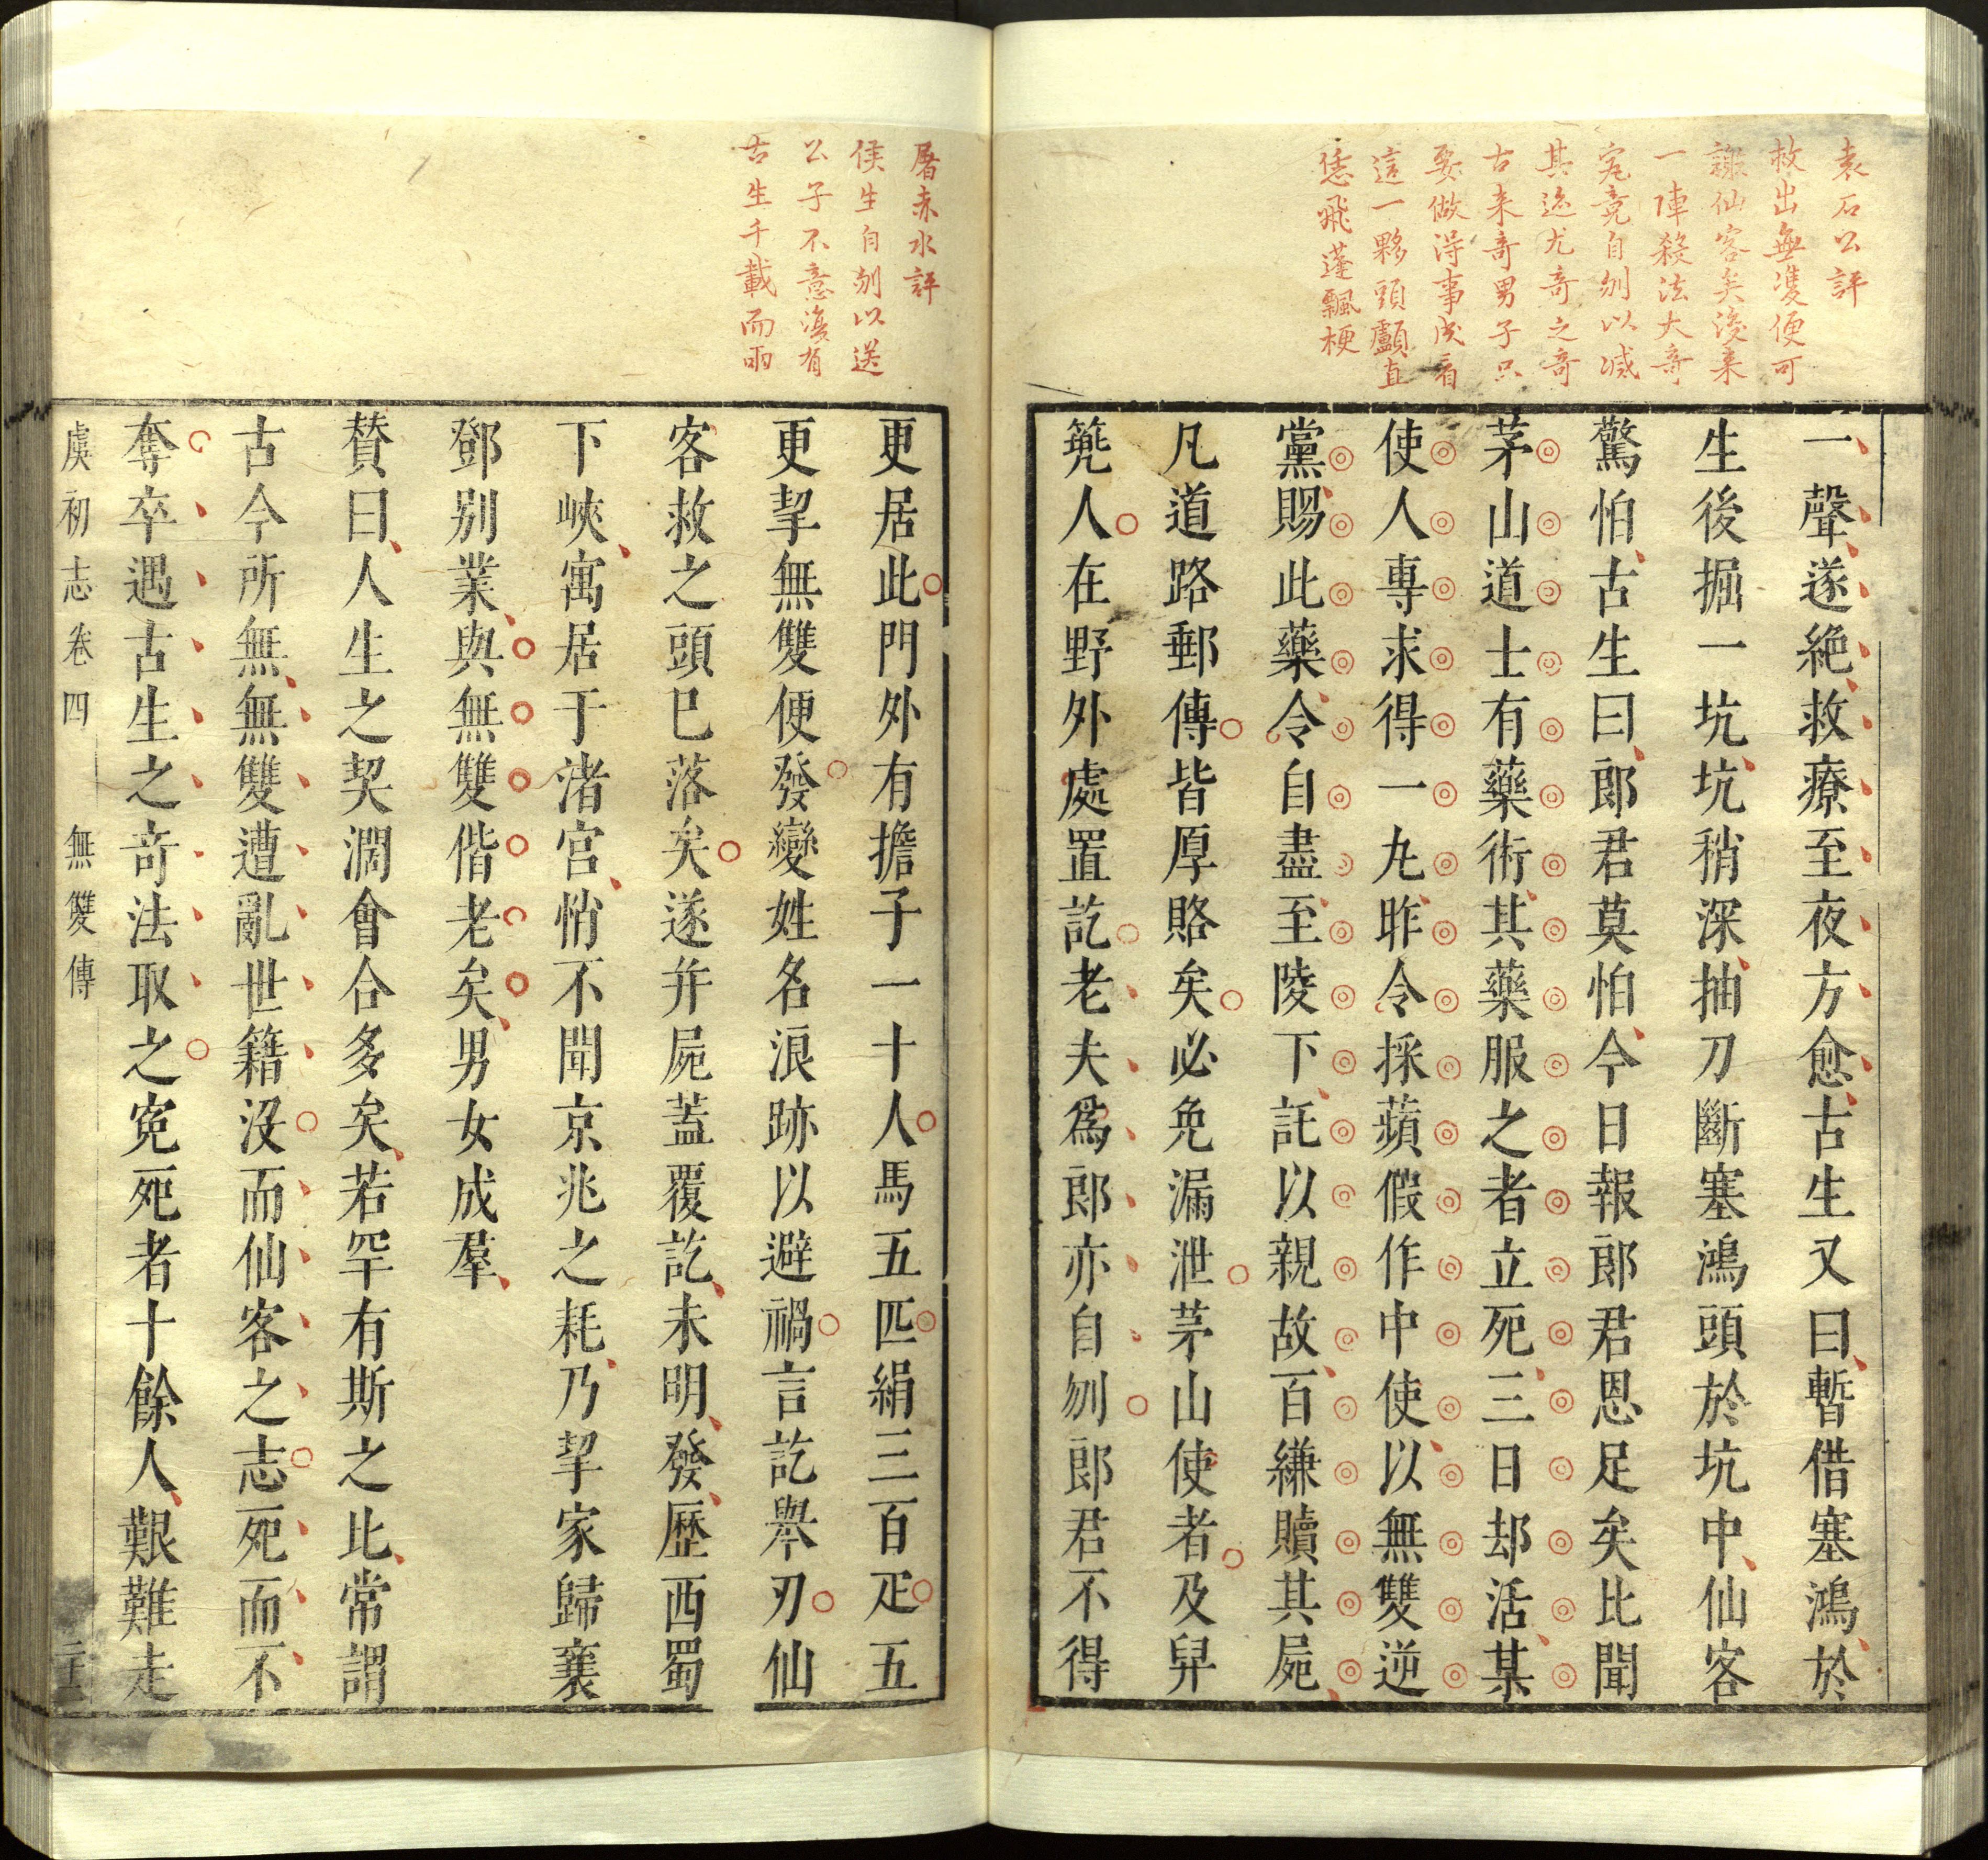 袁石公評
救出無雙便可
謝仙客矣後來
一陣殺法大奇
究竟自刎以滅
其迹尤奇之奇
古來奇男子只
要做得事成看
這一夥頭顱直
恁飛蓬飄梗
一聲遂絶救療至夜方愈古生又曰暫借塞鴻於
生後掘一坑坑稍深抽刀斷塞鴻頭於坑中仙客
驚怕古生曰郎君莫怕今日報郎君恩足矣比聞
茅山道士有藥術其藥服之者立死三日却活某
使人專求得一九昨令採蘋假作中使以無雙逆
黨賜此藥令自盡至陵下託以親故百縑贖其屍
凡道路郵傳皆厚賂矣必免漏泄茅山使者及舁
篼人在野外處置訖老夫爲郎亦自刎郎君不得
屠赤水評
侯生自刎以送
公子不意復有
古生千載而兩
更居此門外有擔子一十人馬五匹絹三百疋五
更挈無雙便發變姓名浪跡以避禍言訖舉刃仙
客救之頭已落矣遂并屍蓋覆訖未明發歷西蜀
下峽寓居于渚宫悄不聞京兆之耗乃挈家歸襄
鄧别業與無雙偕老矣男女成羣
贊曰人生之契濶會合多矣若罕有斯之比常謂
古今所無無雙遭亂世籍沒而仙客之志死而不
奪卒遇古生之奇法取之寃死者十餘人艱難走
虞初志卷四 無雙傳